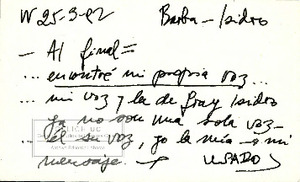 W 25-3-92 Barba - Isidro
- Al final =
... encontré mi propia voz...
... mi voz y la de fray Isidro
ya no son una sola voz -
Él su voz, yo la mía - o mi
mensaje.